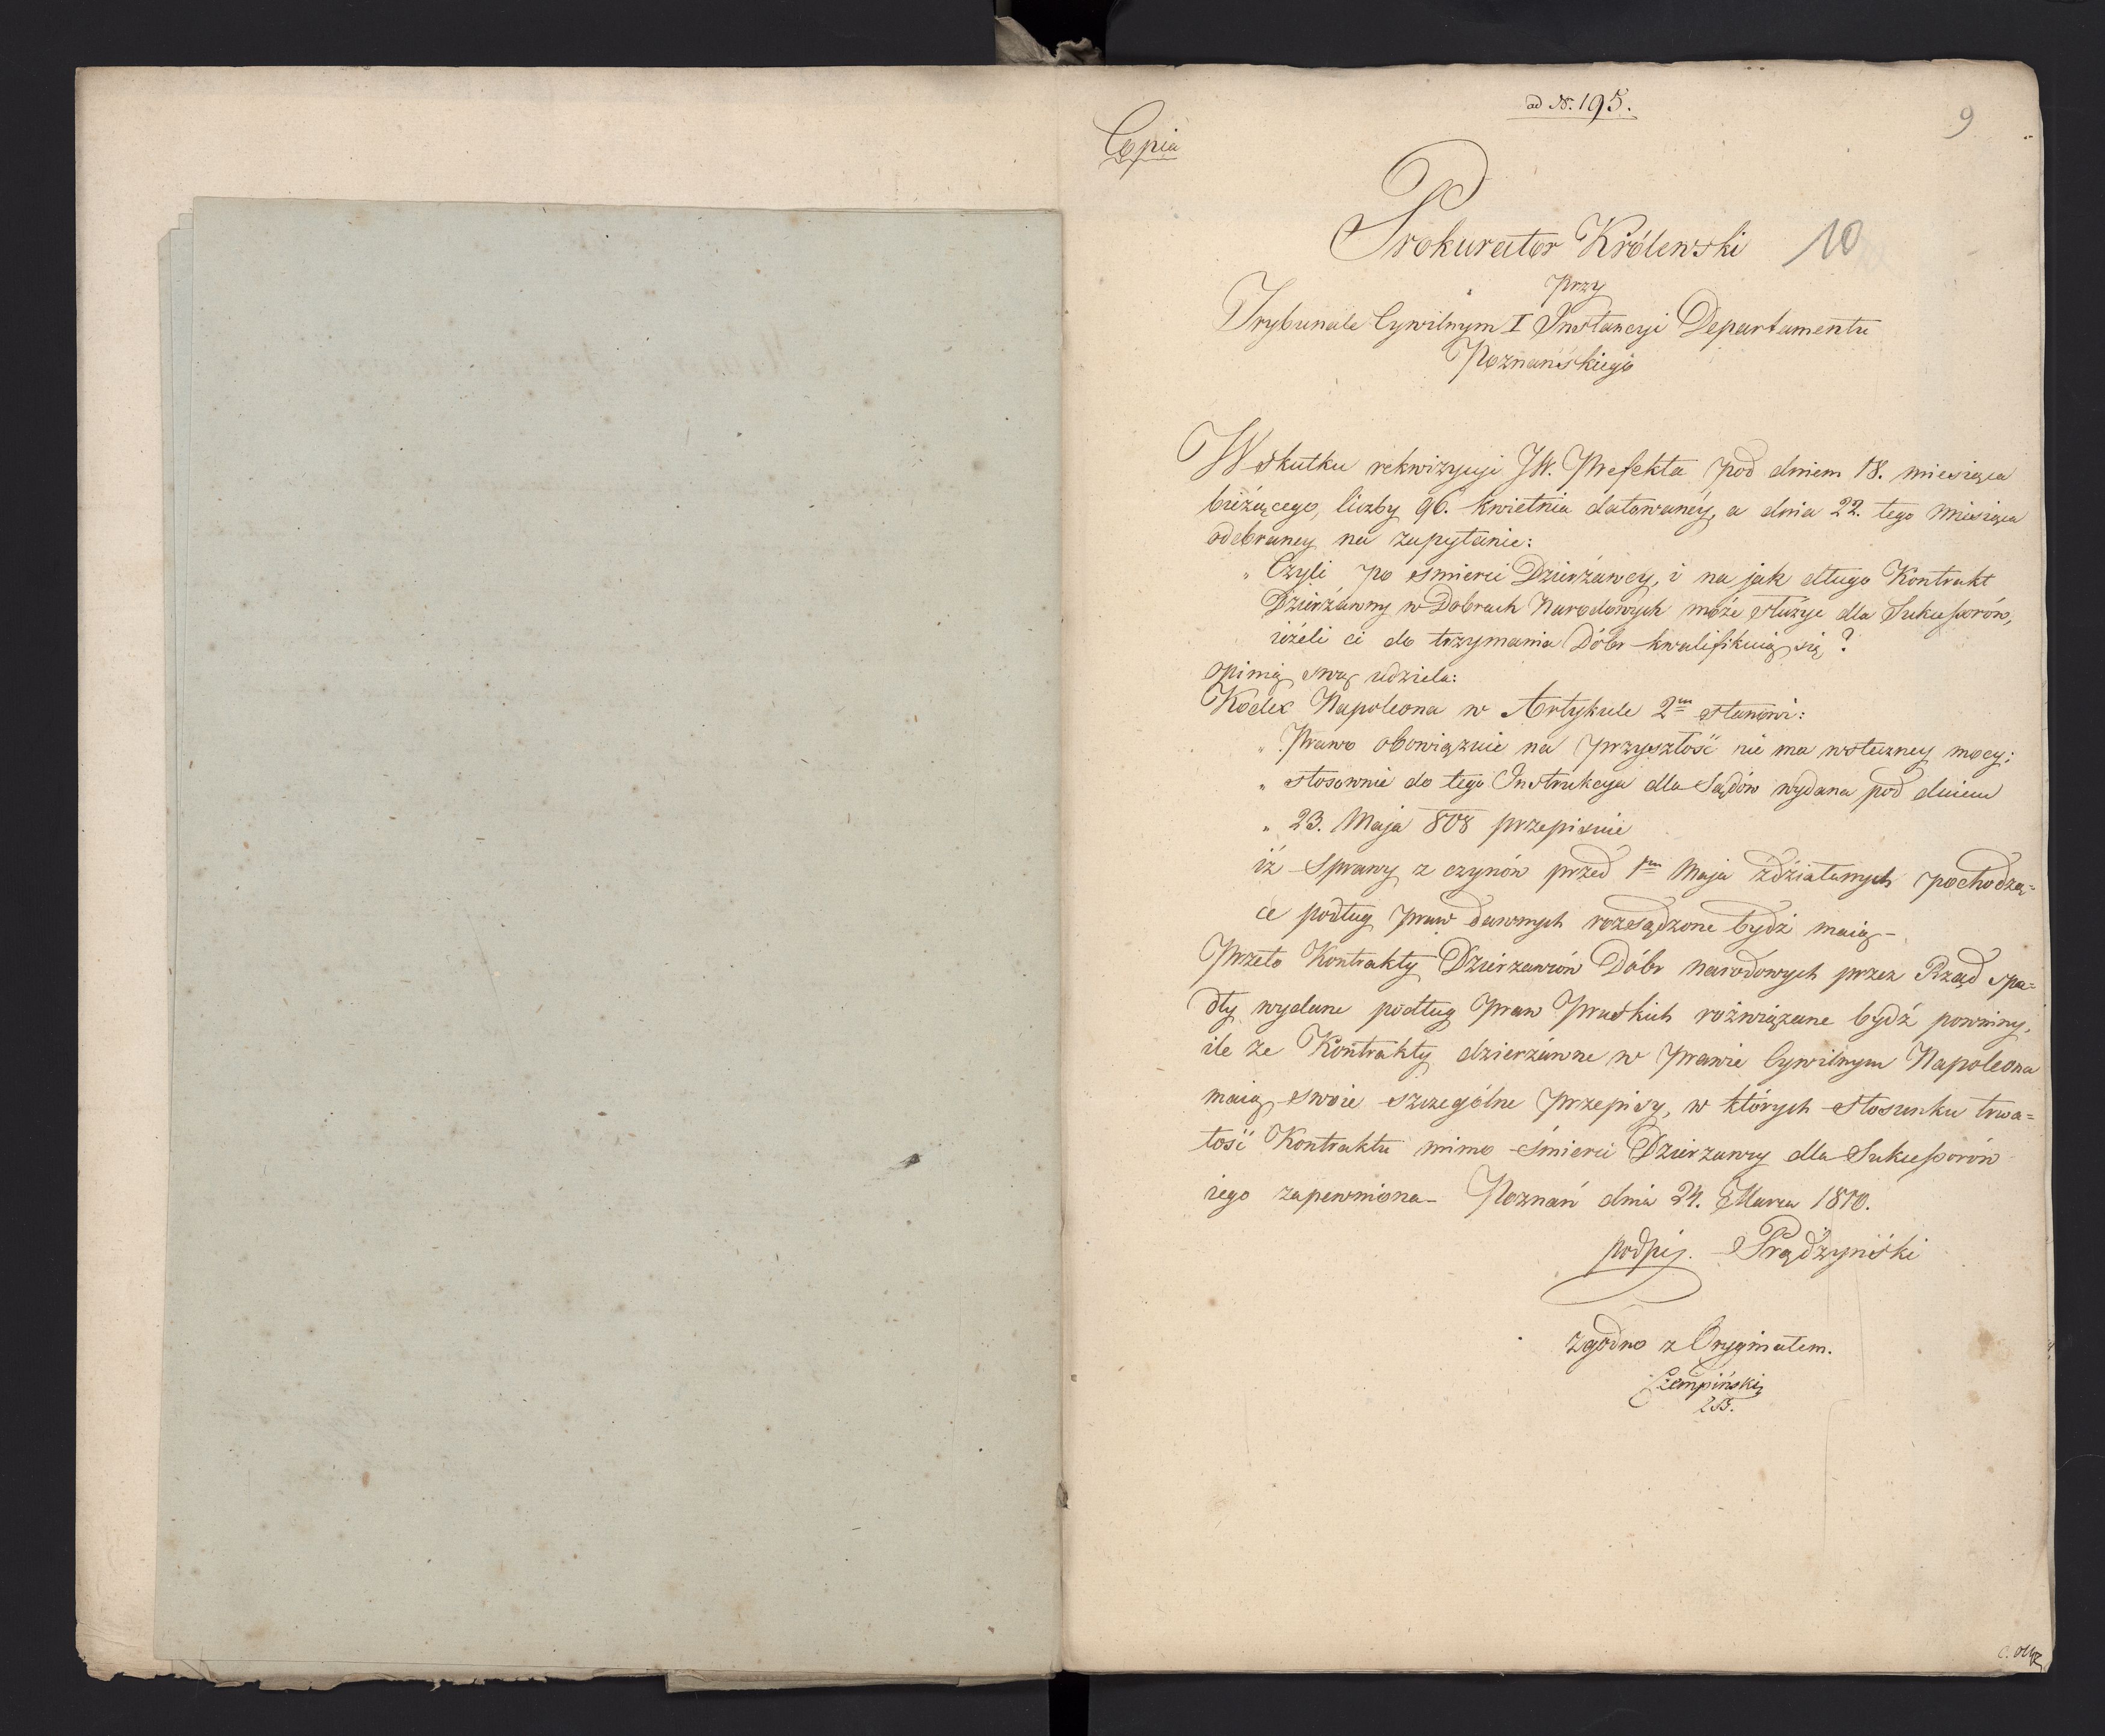 ad N. 195.
9
Copia
Prokurator Królewski
10
przy
Trybunale Cywilnym I Instancyi Departamentu
Poznańskiego
W skutku rekwizycyi JW. Prefekta pod dniem 18. miesiąca
bieżącego, liczby 96. kwietnia datowanéy, a dnia 22. tego miesiąca
odebraney na zapytanie:
„ Czyli po śmierci Dzierżawcy, i na jak długo Kontrakt
Dzierżawny w Dobrach Narodowych może służyć dla Sukcessorów,
ieżeli ci do trzymania Dóbr kwalifikuią się?
opinią swą udziela:
Kodex Napoleona w Artykule 2m stanowi:
„ Prawo obowiązuie na przyszłość nie ma wsteczney mocy;
„ stosownie do tego Instrukcya dla Sądów wydana pod dniem
„ 23. Maja 808 przepisuie
iż Sprawy z czynów przed 1m Maja zdziałanych pochodzą=
ce podług praw dawnych rozsądzone bydź maią –
Przeto Kontrakty Dzierzawców Dóbr narodowych przez Rząd spa=
dły wydane podług Praw Pruskich rozwiązane bydź powinny,
ile że Kontrakty dzierzawne w prawie Cywilnym Napoleona
maią swoie szczególne przepisy, w których stosunku trwa=
łość Kontraktu mimo śmierci Dzierzawcy dla Sukcessorów
iego zapewniona – Poznań dnia 24. Marca 1810.
podpis. Prądzyński
zgodno z Oryginałem.
Czempiński